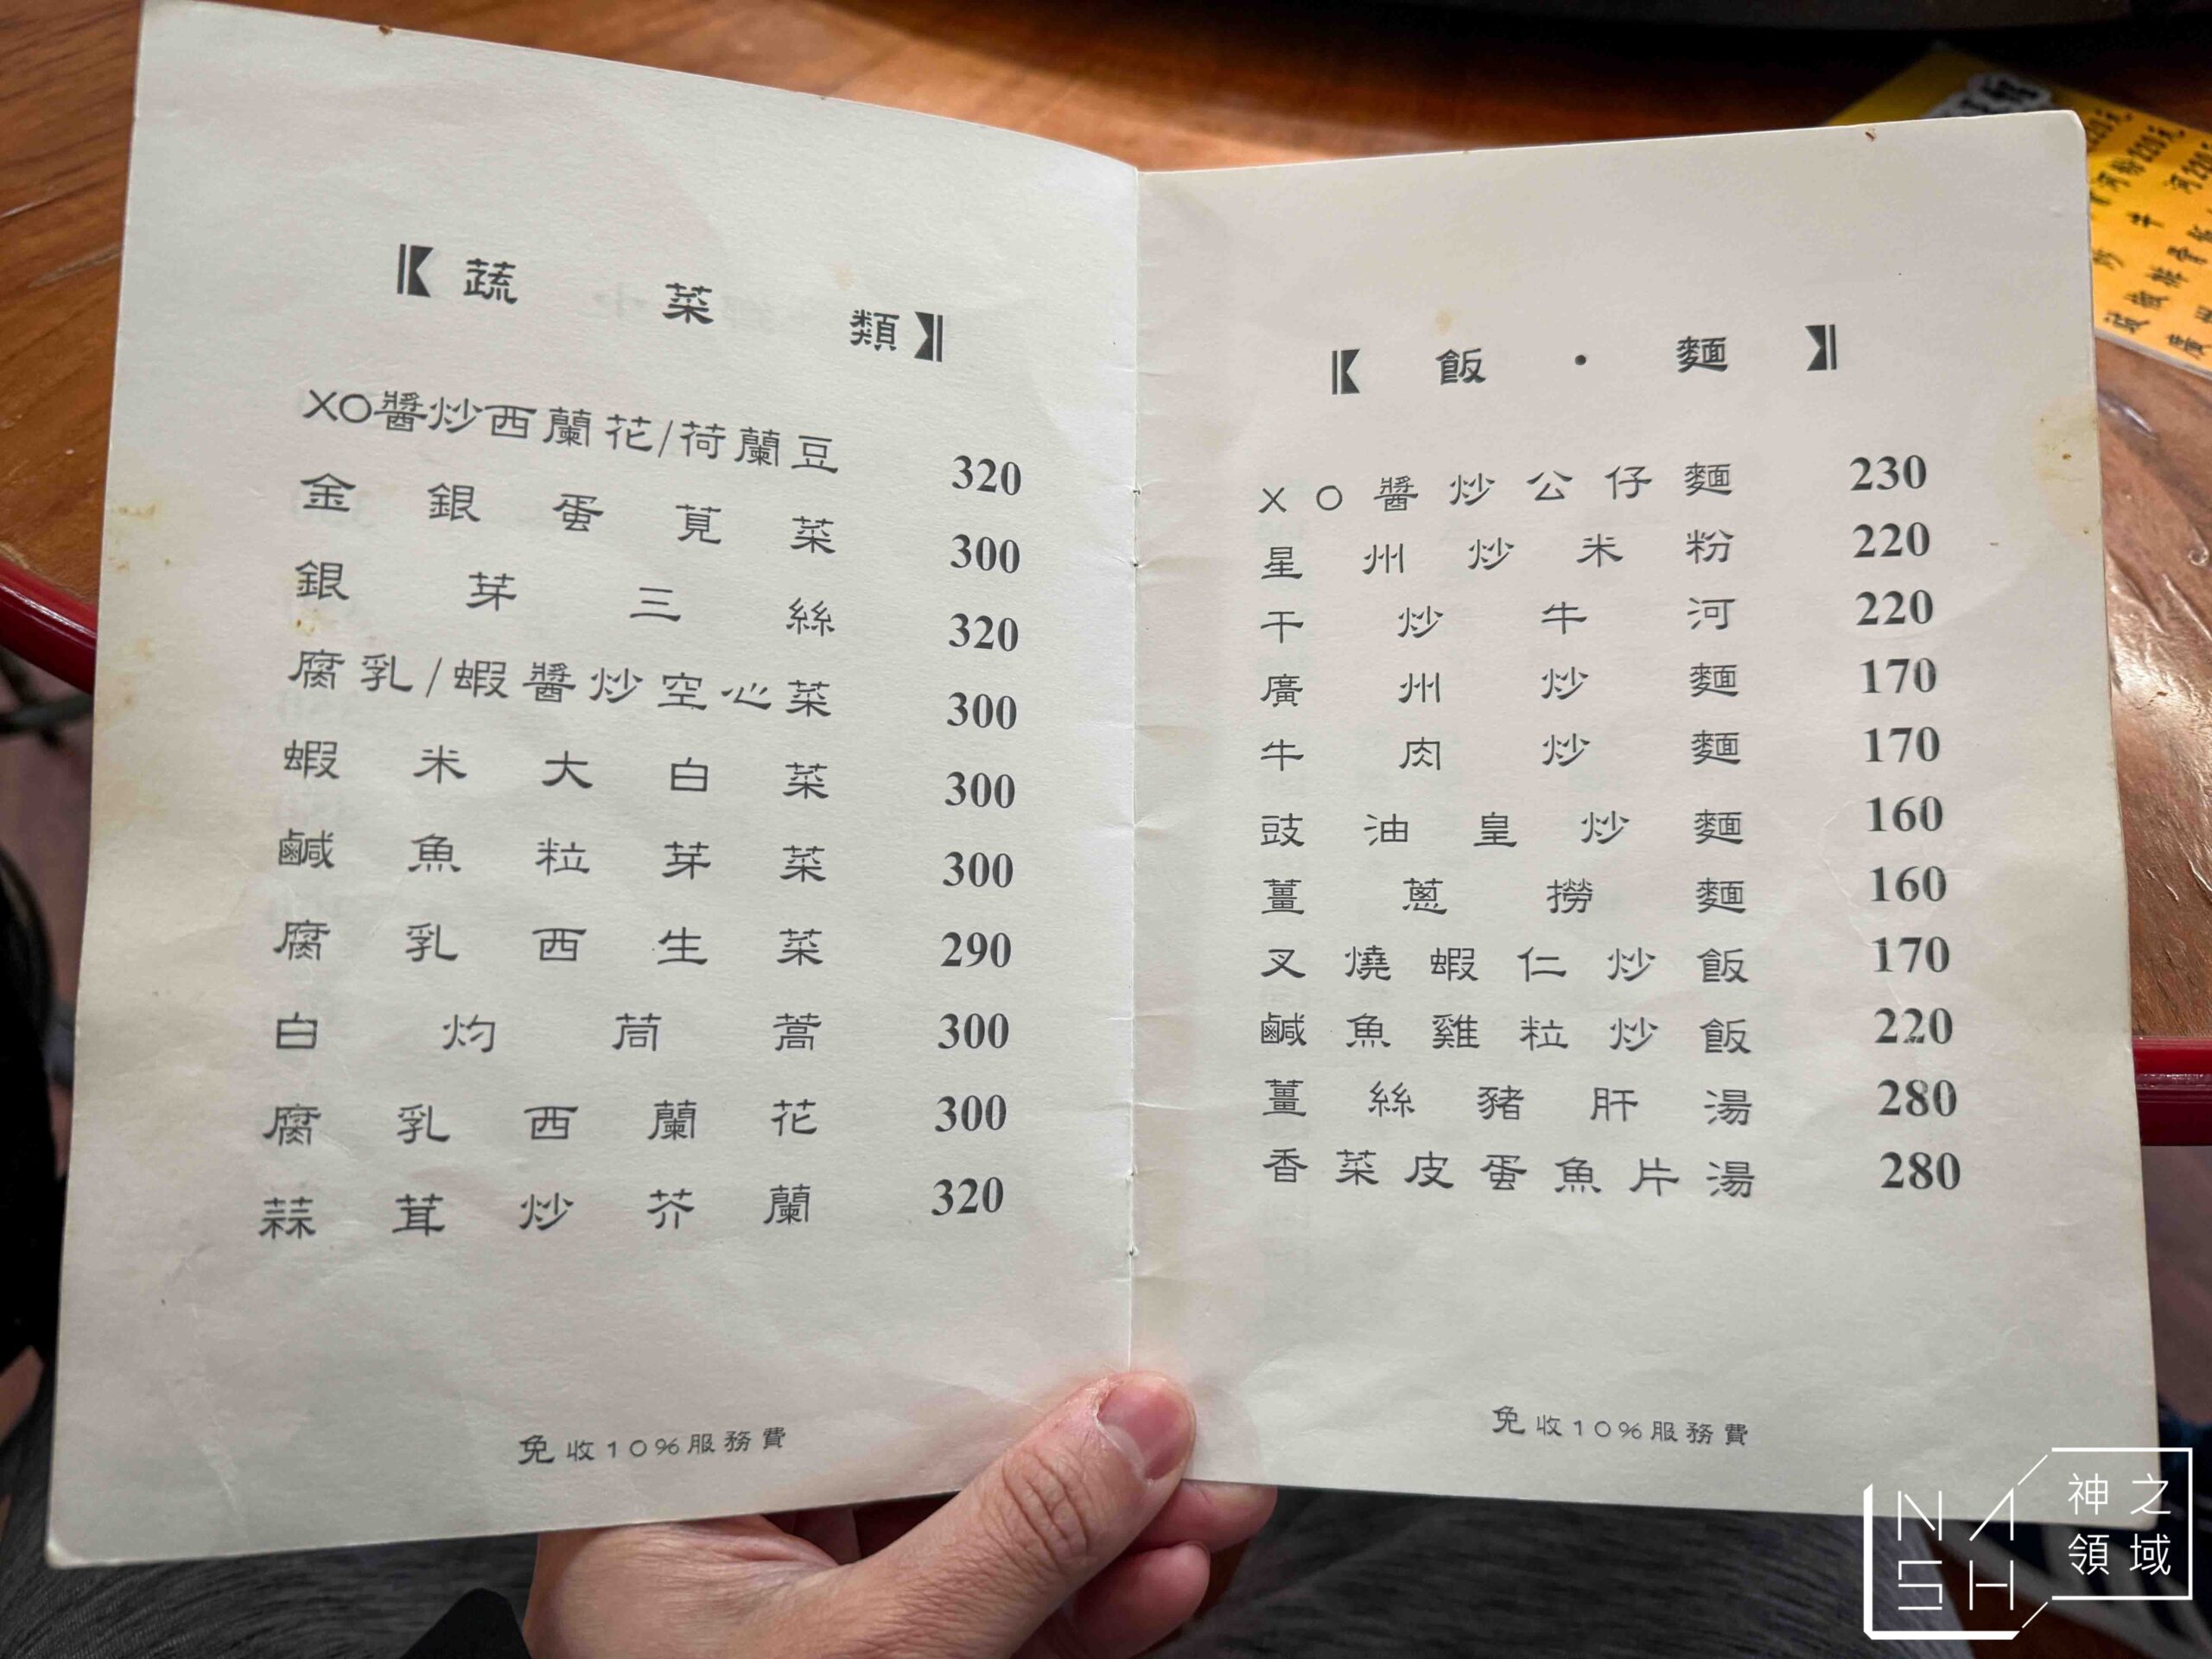 【蔬菜類】
XO醬炒西蘭花/荷蘭豆 320
金銀蛋莧菜 300
銀芽三絲 320
腐乳/蝦醬炒空心菜 300
蝦米大白菜 300
鹹魚粒芽菜 300
腐乳西生菜 290
白灼茼蒿 300
腐乳西蘭花 300
蒜茸炒芥蘭 320
免收10%服務費
【飯・麵】
XO醬炒公仔麵 230
星州炒米粉 220
干炒牛河 220
廣州炒麵 170
牛肉炒麵 170
豉油皇炒麵 160
薑蔥撈麵 160
叉燒蝦仁炒飯 170
鹹魚雞粒炒飯 220
薑絲豬肝湯 280
香菜皮蛋魚片湯 280
免收10%服務費
NASH
神之
領域